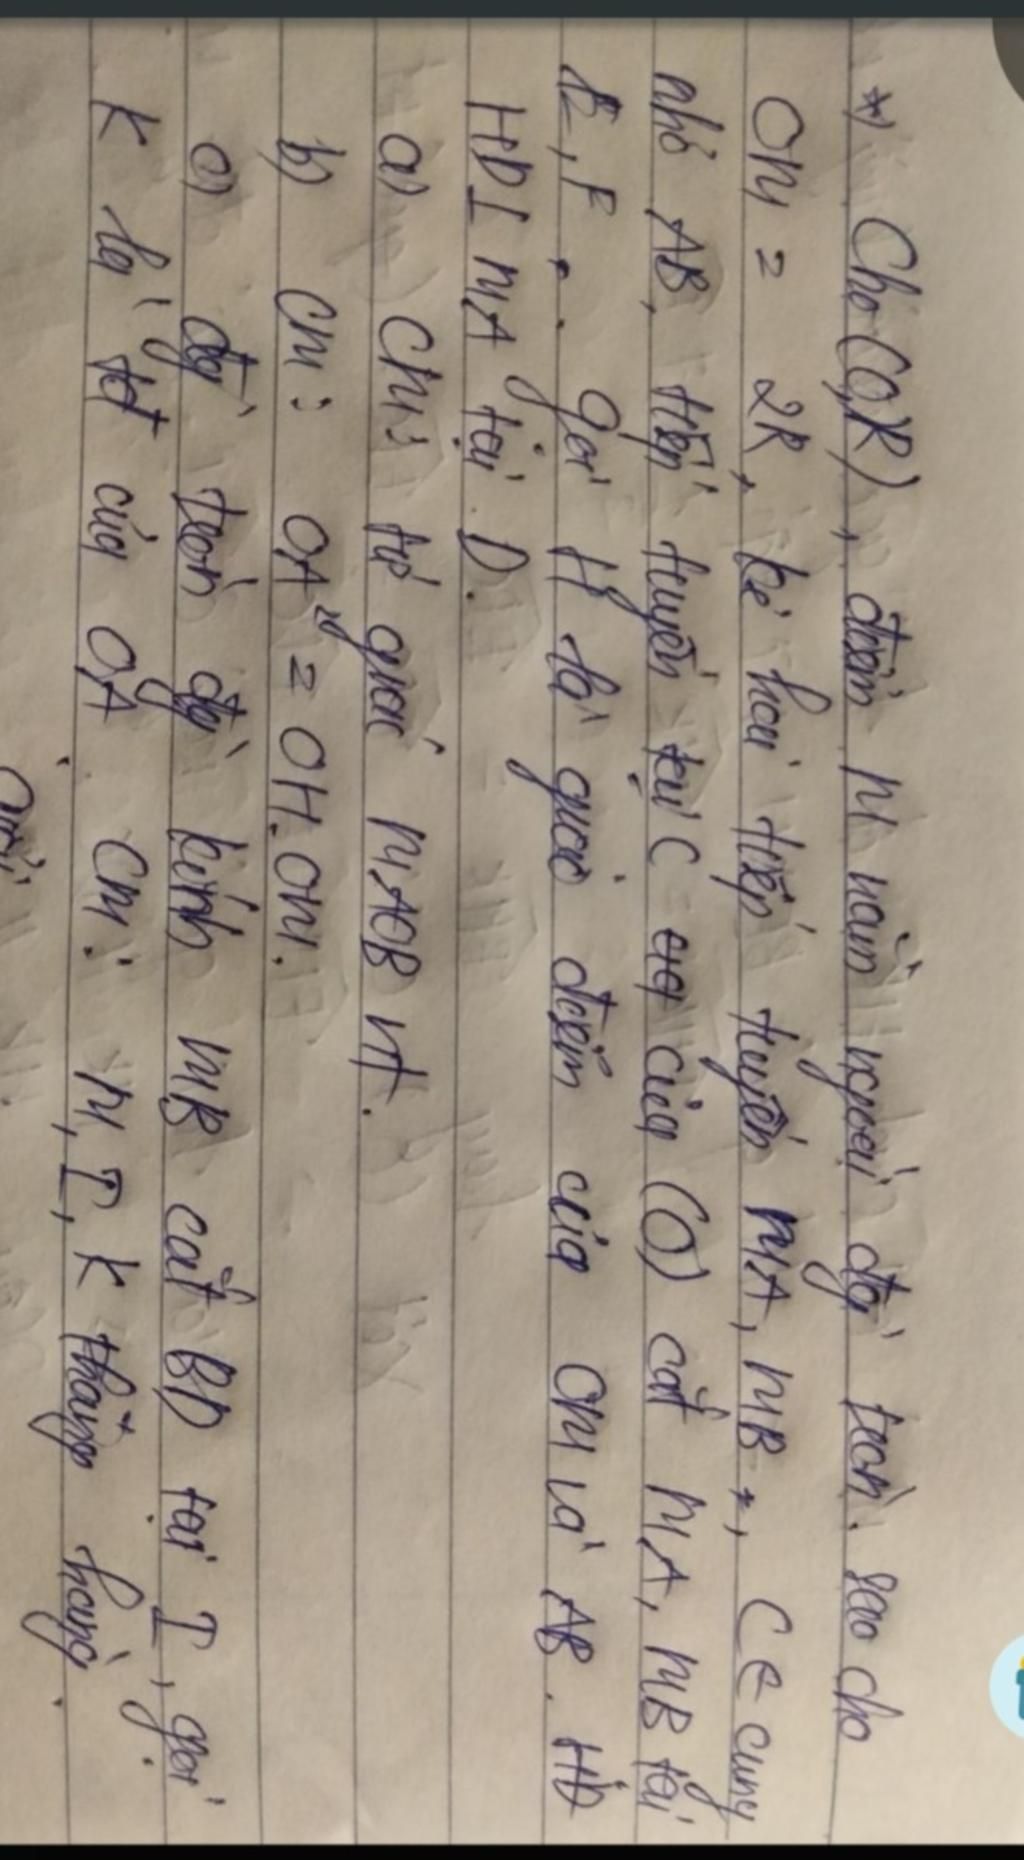 *) Cho (O,R), điểm M nằm ngoài đg tròn. sao cho
OM = 2R, kẻ hai tiếp tuyến MA, MB, C ∈ cung
nhỏ AB, tiếp tuyến tại C của (O) cắt MA, MB tại
E, F. gọi H là giao điểm của OM và AB. HD
HD ⊥ MA tại D.
a) CM: tứ giác MAOB nt.
b) CM: OA² = OH.OM.
c) đg tròn đg kính MB cắt BD tại I, gọi
K là tđ của OA. CM: M, I, K thẳng hàng.